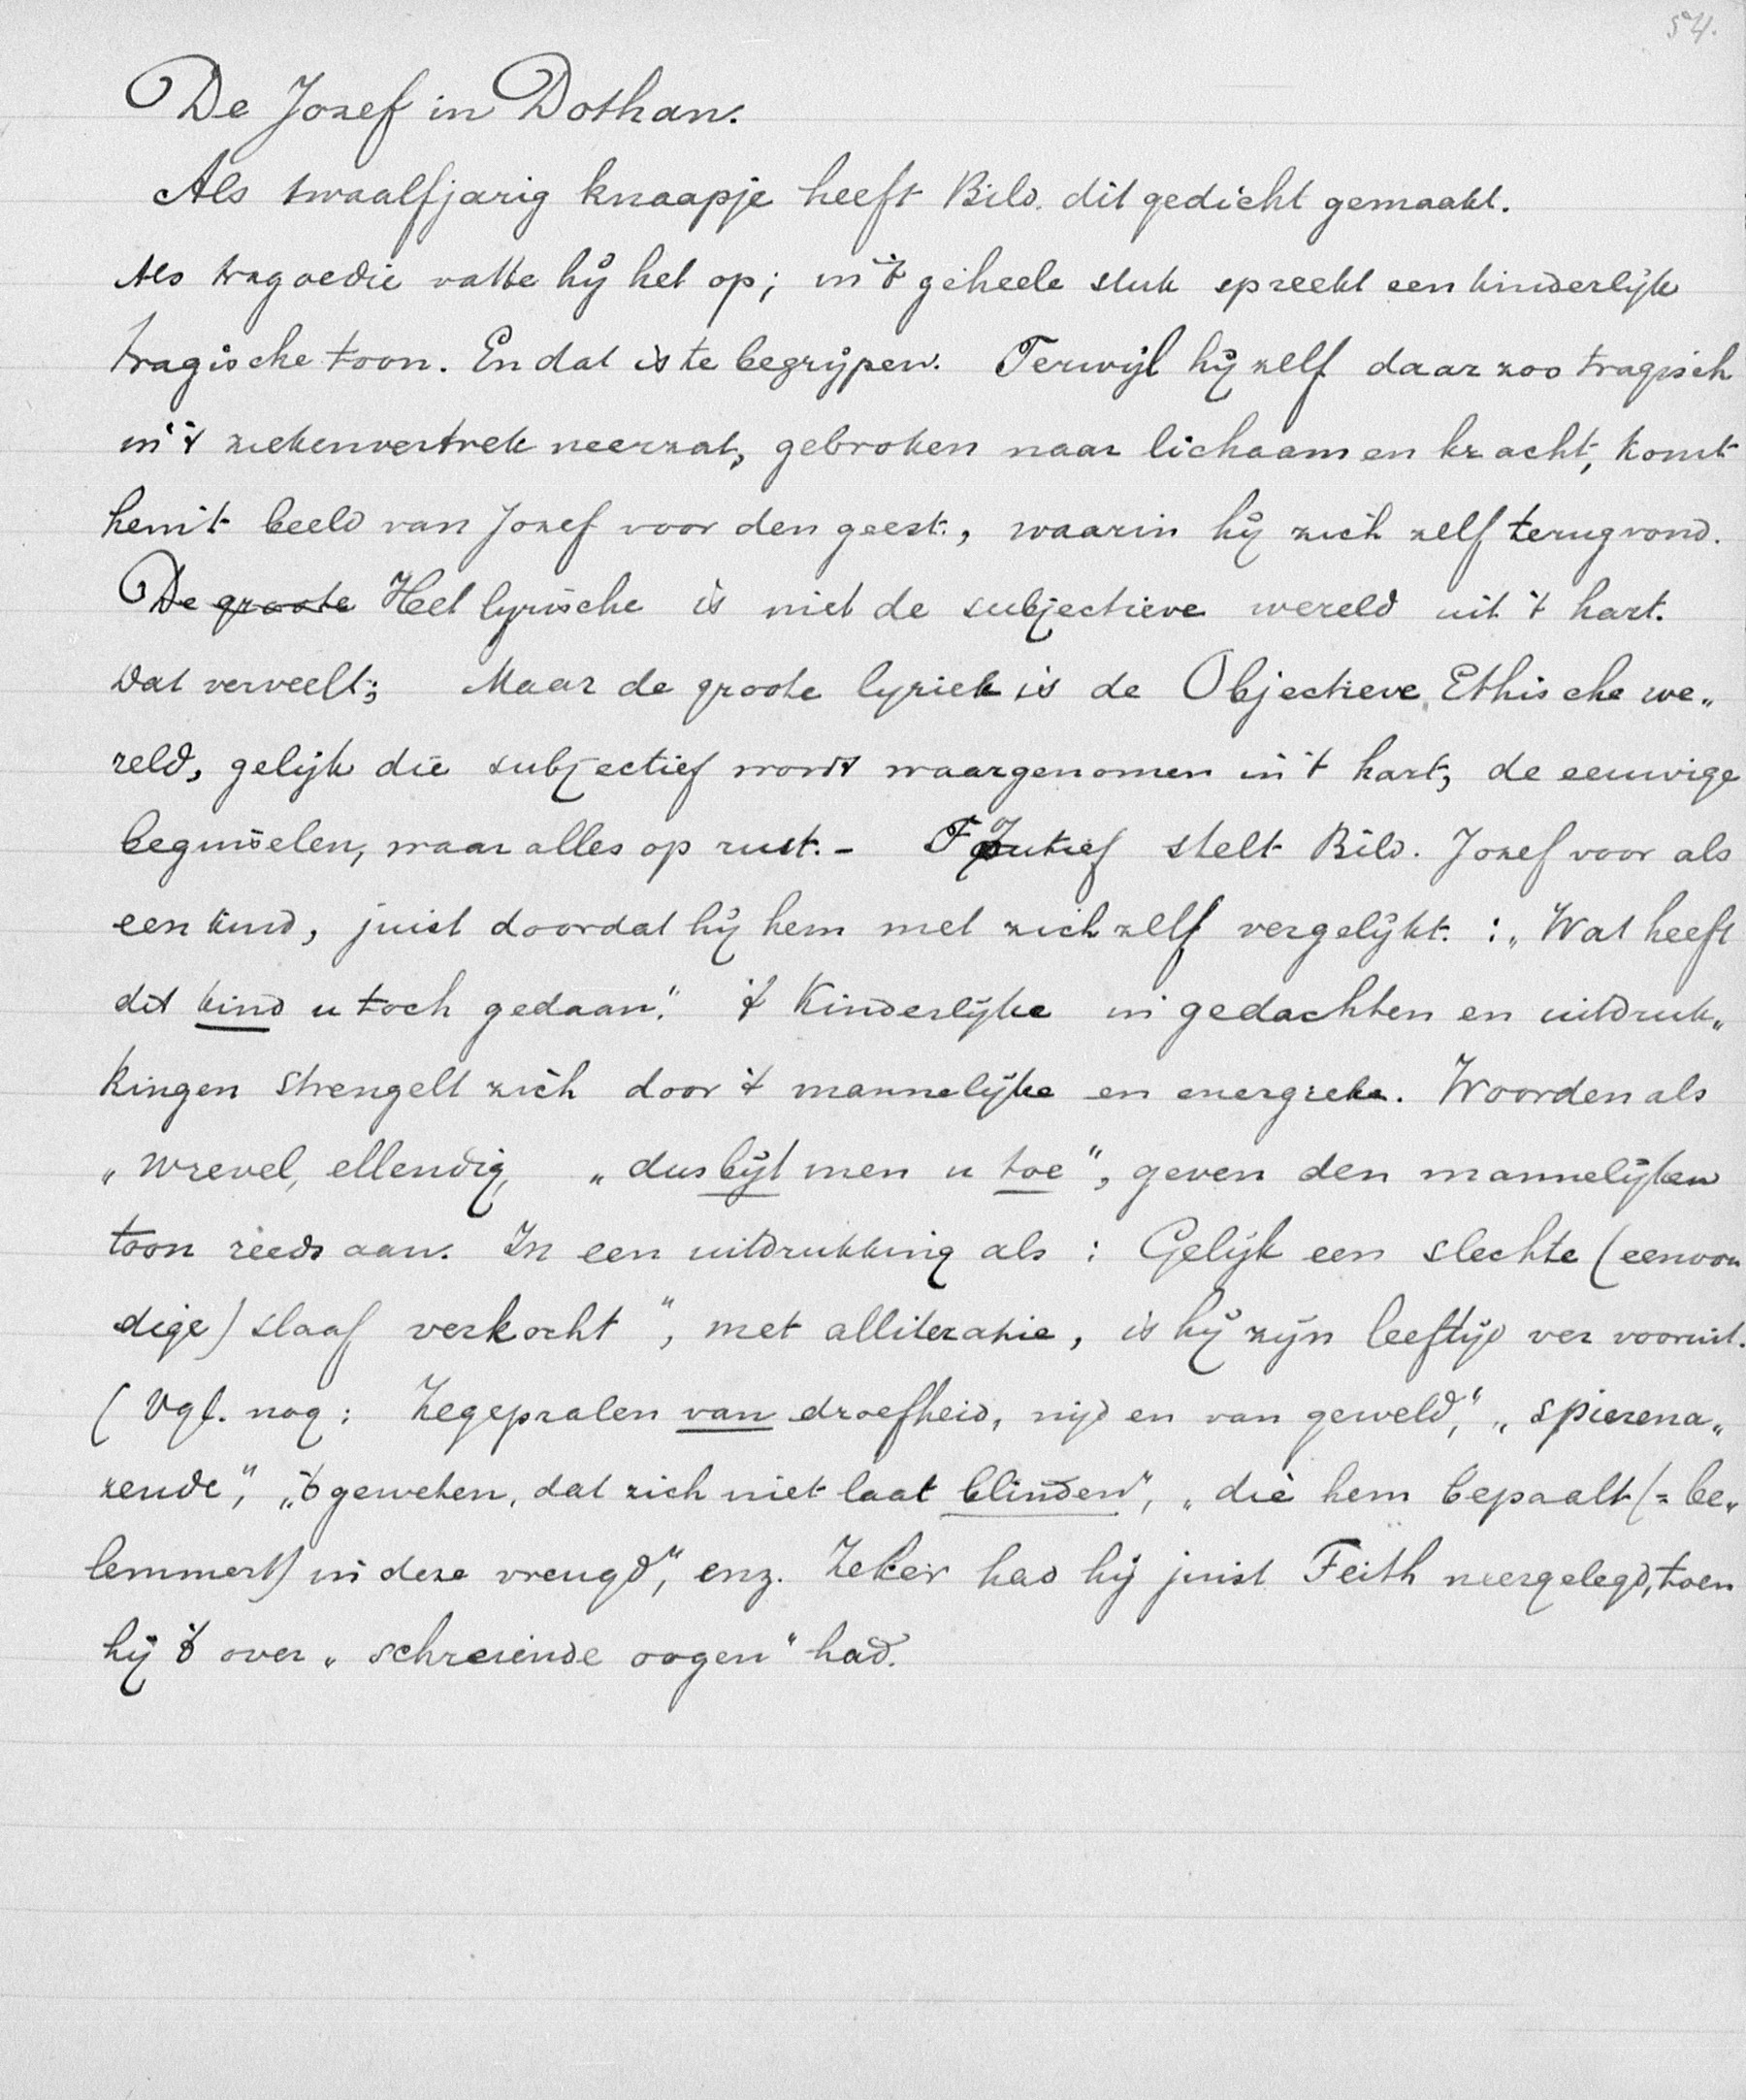 54.
De Jozef in Dothan.
Als twaalfjarig knaapje heeft Bild. dit gedicht gemaakt.
Als tragoedie vatte hij het op; in 't geheele stuk spreekt een kinderlijk
tragische toon. En dat is te begrijpen. Terwijl hij zelf daar zoo tragisch
in 't ziekenvertrek neerzat, gebroken naar lichaam en kracht, komt
hem 't beeld van Jozef voor den geest, waarin hij zich zelf terugvond.
De groote Het lyrische is niet de subjectieve wereld uit 't hart.
Dat verveelt; Maar de groote lyriek is de Objectieve, Ethische we„
reld, gelijk die subjectief wordt waargenomen in 't hart, de eeuwige
beginselen, waar alles op rust. - Foutief stelt Bild. Jozef voor als
een kind, juist doordat hij hem met zich zelf vergelijkt: „Wat heeft
dit kind u toch gedaan." 't Kinderlijke in gedachten en uitdruk„
kingen strengelt zich door 't mannelijke en energieke. Woorden als
„wrevel, ellendig, „dus bijt men u toe", geven den mannelijken
toon reeds aan. In een uitdrukking als: Gelijk een slechte (eenvou
dige) slaaf verkocht", met alliteratie, is hij zijn leeftijd ver vooruit.
(Vgl. nog: Zegepralen van droefheid, nijd en van geweld," „spierena„
zende", „'t geweten, dat zich niet laat blinden", „die hem bepaalt (= be„
lemmert) in deze vreugd", enz. Zeker had hij juist Feith neergelegd, toen
hij 't over „schreiende oogen" had.